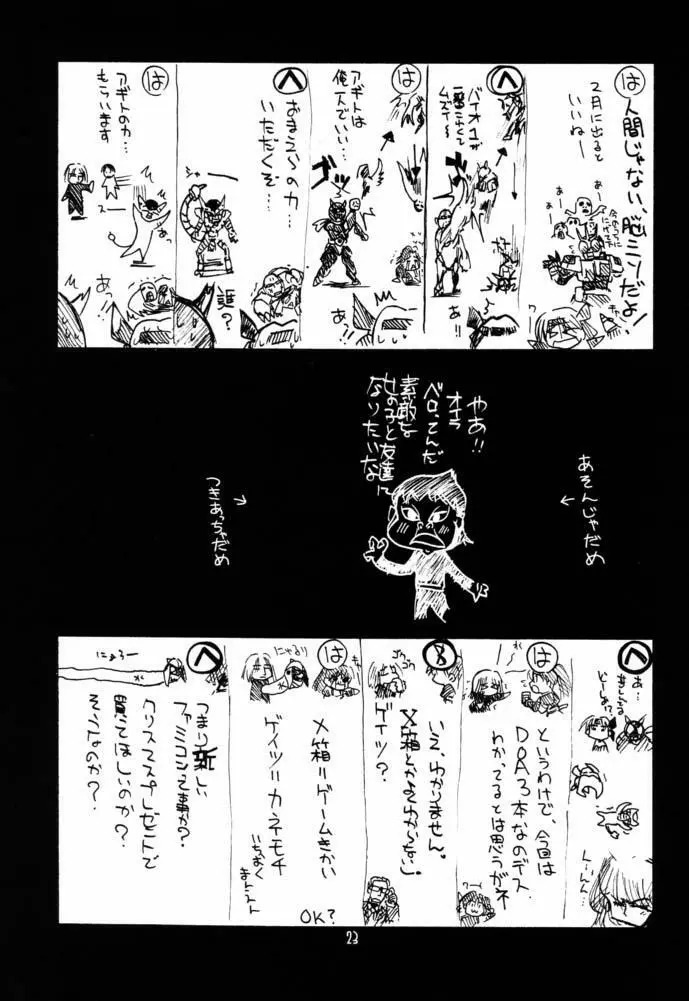 は
人間じゃない、脳ミソだよ!
2月に出ると
いいねー
あー
あー
キャー
ワー
へ
バイオ1が
ムズイー
あ!!
は
アギトは
俺一人でいい…
ゴッ
あっ!!
へ
おまえらの力…
いただくぞ…
シャー
誰?
は
アギトの力…
もらいます
スー
あっ
あっ
やあ!!
オイラ
ベロってんだ
素敵な
女の子と友達に
なりたいな
あそんじゃだめ
→
つきあっちゃだめ
←
へ
あ…
どーしよ!?
は
というわけで、今回は
DOA3本なのデス
わかってるとは思うがネ
8
いえ、わかりません。
X箱とかよくわからない」
ゲイツ?
は
にゃるり
X箱=ゲームきかい
ゲイツ=カネモチ
OK?
へ
にょろー
つまり新しい
ファミコンって事か?
クリスマスプレゼントで
買ってほしいのか?
そうなのか?
23